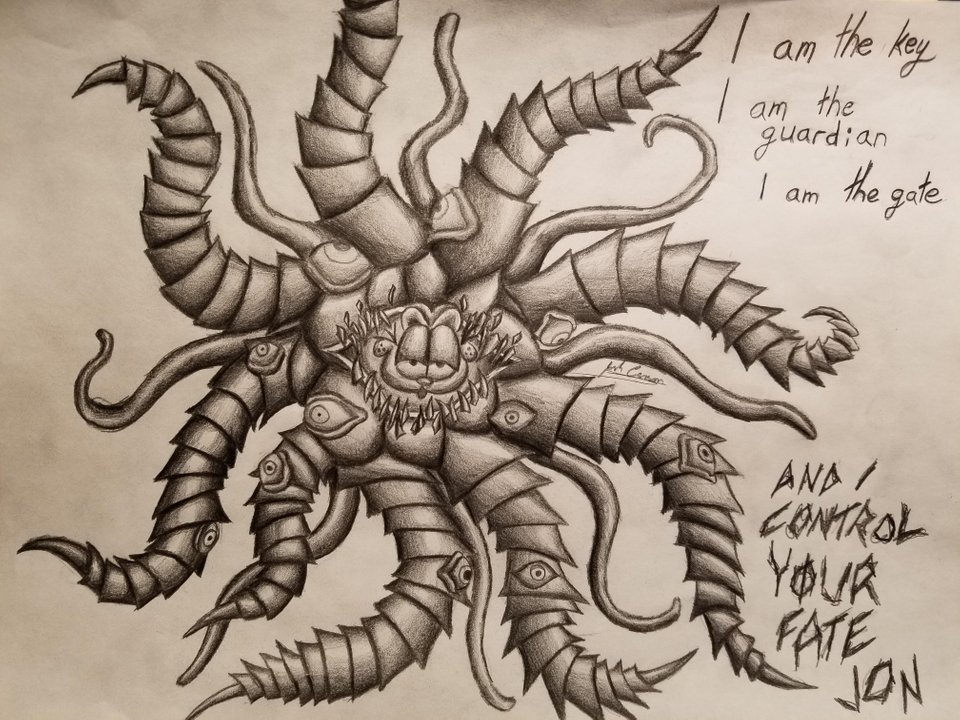 I am the key
I am the
guardian
I am the gate
AND I
CONTROL
YOUR
FATE
JON